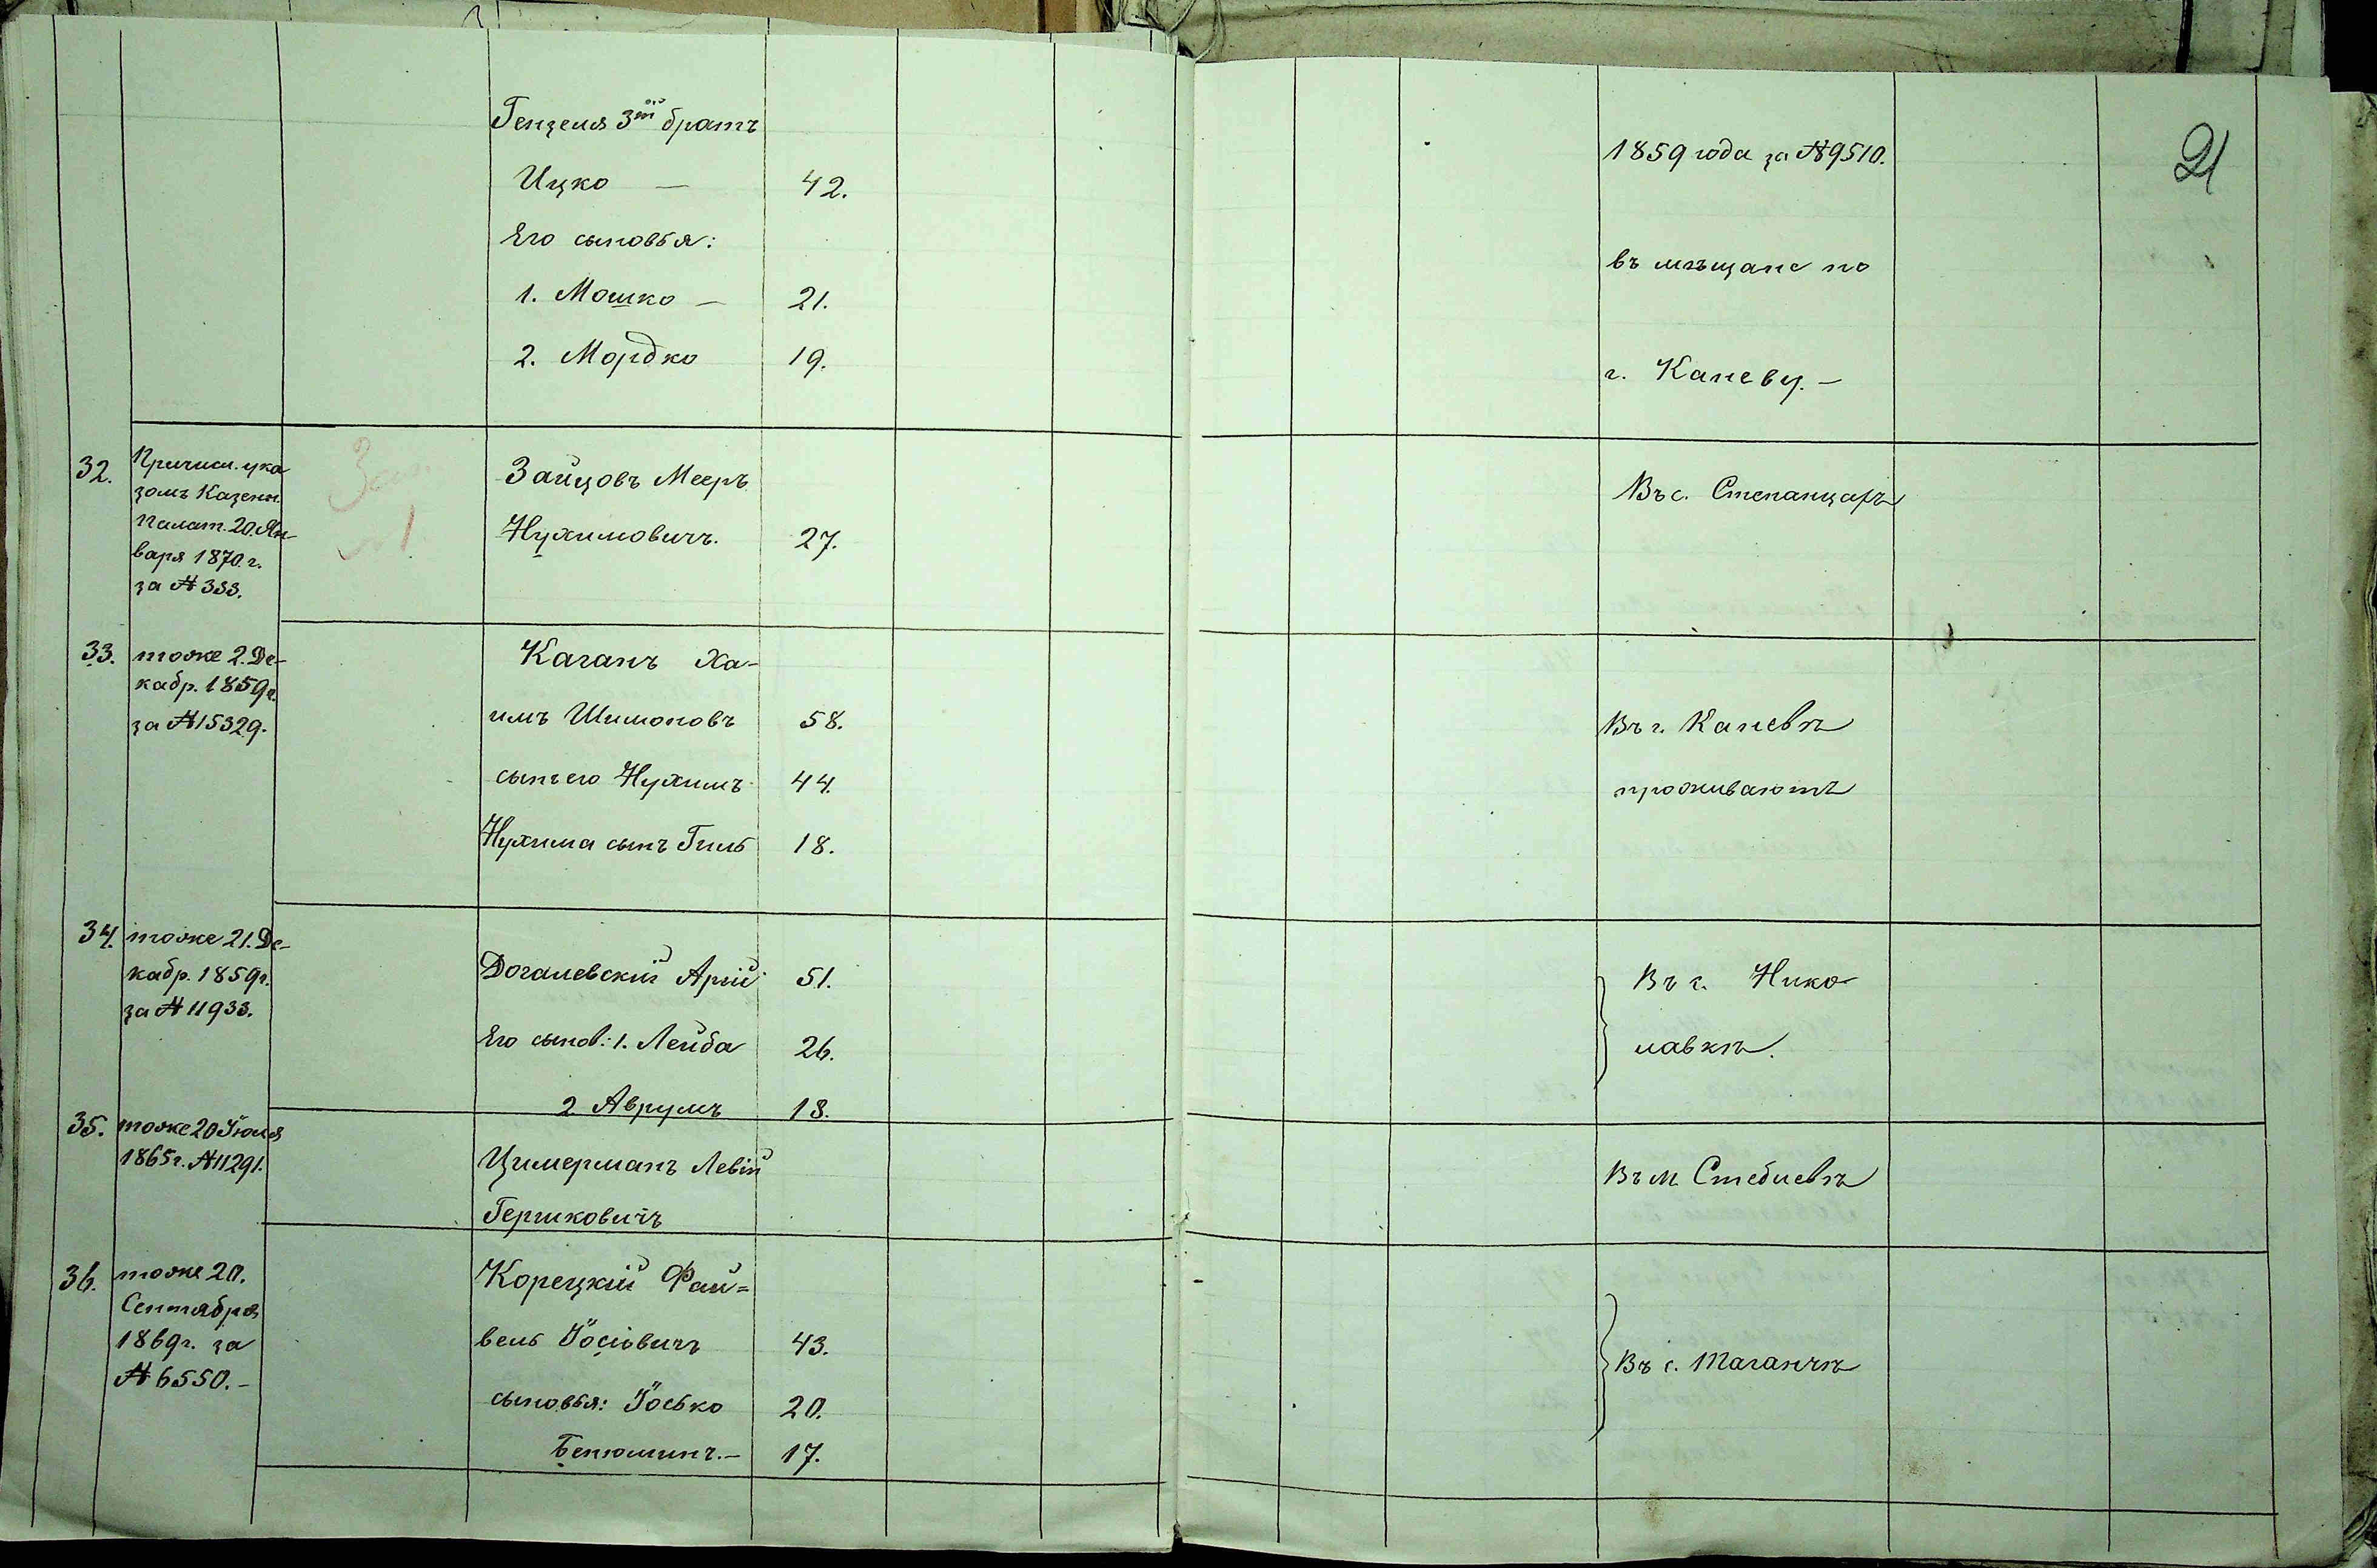 21
Гензеля 3ій братъ
Ицко — 42.
Его сыновья:
1. Мошко — 21.
2. Мордко 19.
1859 года за №9510.
въ мѣщане по
г. Каневу. —
32.
Причисл. ука
зомъ Казенн.
Палат. 20. Ян-
варя 1870. г.
за № 353.
Зайцовъ Мееръ
Нухимовичъ. 27.
Въ с. Степанцахъ
33.
тоже 2. Де-
кабр. 1859г.
за №15329.
Каганъ Ха-
имъ Шимоновъ 58.
сынъ его Нухимъ 44.
Нухима сынъ Гиль 18.
Въ г. Каневѣ
проживаютъ
34.
тоже 21. Де-
кабр. 1859г.
за № 11933.
Догалевскій Арій 51.
Его сынов.: 1. Лейба 26.
2 Аврумъ 18.
Въ с. Нико
лавкѣ.
35.
тоже 20 Іюля
1865г. №11291.
Цимерманъ Левій
Гершковичъ
Въ м. Стеблевѣ
36.
тоже 20.
Сентября
1869г. за
№ 6550. —
Корецкій Фай=
вель Іосіовичъ 43.
сыновья: Іосько 20.
Бенюминъ. — 17.
Въ с. Таганчѣ